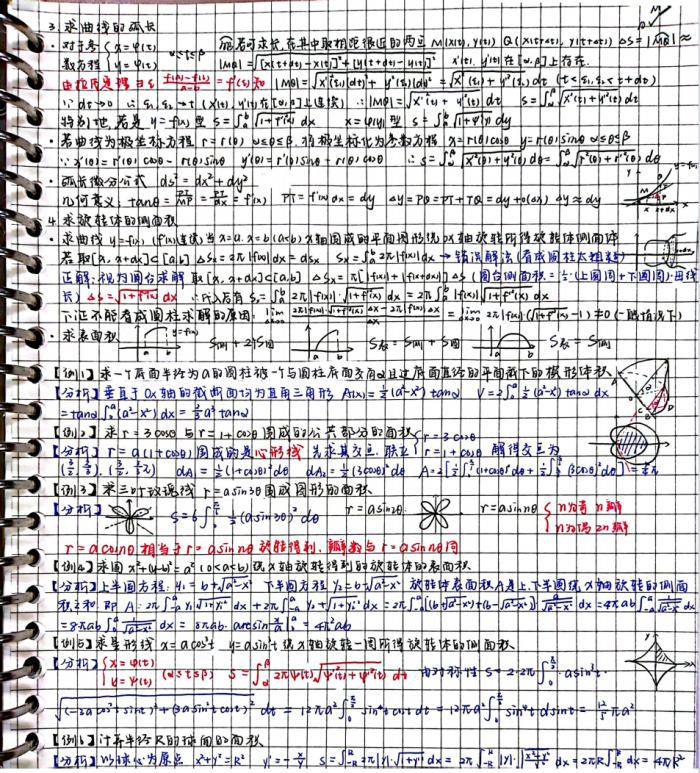 3. 求曲线的弧长
· 对于参数方程 { x = φ(t) y = ψ(t) α≤t≤β 若可求长,在其中取相距很近的两点 M(x(t), y(t)) Q(x(t+dt), y(t+dt)) ΔS = |MQ| ≈
|MQ| = √([x(t+dt)-x(t)]²+[y(t+dt)-y(t)]²) x'(t), y'(t) 在[α,β]上存在.
= f'(ξ) 知 |MQ| = √(x'²(ξ₁)(dt)²+y'²(ξ₂)(dt)²) = √(x'²(ξ₁)+y'²(ξ₂)) dt (t<ξ₁,ξ₂<t+dt)
∵ dt→0 ∴ ξ₁,ξ₂→t (x'(t), y'(t)在[α,β]上连续) ∴ |MQ| = √(x'²(t)+y'²(t)) dt S = ∫_α^β √(x'²(t)+y'²(t)) dt
特别地,若是 y=f(x) 型 S = ∫_a^b √(1+f'²(x)) dx x=φ(y)型 S = ∫_a^b √(1+φ'²(y)) dy
· 若曲线为极坐标方程 r = r(θ) α≤θ≤β, 将极坐标化为参数方程 x = r(θ)cosθ y = r(θ)sinθ α≤θ≤β
∵ x'(θ) = r'(θ)cosθ - r(θ)sinθ y'(θ) = r'(θ)sinθ + r(θ)cosθ ∴ S = ∫_α^β √(x'²(θ)+y'²(θ)) dθ = ∫_α^β √(r²(θ)+r'²(θ)) dθ
· 弧长微分公式 ds² = dx²+dy²
几何意义: tanθ = PT/MP = PT/dx = f'(x) PT = f'(x)dx = dy Δy = PQ = PT+TQ = dy+o(Δx) Δy ≈ dy
4. 求旋转体的侧面积
· 求曲线 y=f(x) (f'(x)连续) 与 x=a, x=b (a<b) x轴围成的平面图形绕 ox 轴旋转所得旋转体侧面积
若取[x, x+dx]⊂[a,b] ΔSₓ = 2π|f(x)|dx = dSₓ Sₓ = ∫_a^b 2π|f(x)|dx → 错误解法(看成圆柱太粗糙)
正解: 视为圆台求解 取[x, x+dx]⊂[a,b] ΔSₓ = π[|f(x)|+|f(x+dx)|]ΔS (圆台侧面积 = ½·(上圆周+下圆周)·母线
长) ΔS = √(1+f'²(x)) dx ∴ 所以有 S = ∫_a^b 2π|f(x)|·√(1+f'²(x)) dx = 2π∫_a^b |f(x)|√(1+f'²(x)) dx
下证不能看成圆柱求解的原因: lim Δx→0 (2π|f(x)|·√(1+f'²(x)) Δx - 2π|f(x)|Δx)/Δx = lim Δx→0 2π|f(x)|(√(1+f'²(x)) - 1) ≠ 0 (一般情况下)
· 求表面积 y=f(x) a b S侧+2个S圆 a b S表 = S侧+S圆 a b S表 = S侧
【例1】求一底面半径为a的圆柱被一个与圆柱底面交角α且过底面直径的平面截下的楔形体体积
【分析】垂直于 Ox 轴的截断面均为直角三角形 A(x) = ½(a²-x²)tanα V = 2∫_0^a ½(a²-x²)tanα dx
= tanα∫_0^a (a²-x²)dx = ⅔a³tanα
【例2】求 r = 3cosθ 与 r = 1+cosθ 围成的公共部分的面积
【分析】r = a(1+cosθ) 围成的是心形线 先求其交点. 联立 { r = 3cosθ r = 1+cosθ 解得交点为
(3/2, π/3), (3/2, 5/3π) dA₁ = ½(1+cosθ)²dθ dA₂ = ½(3cosθ)²dθ A = 2[½∫_0^{π/3}(1+cosθ)²dθ + ½∫_{π/3}^{π/2}(3cosθ)²dθ] = 5/4π
【例3】求三叶玫瑰线 r = asin3θ 围成图形的面积
【分析】 S = 6∫_0^{π/6} ½(asin3θ)²dθ r = asin2θ r = asinnθ { n为奇 n瓣 n为偶 2n瓣
r = acosnθ 相当于 r = asinnθ 旋转得到, 瓣数与 r = asinnθ 同
【例4】求圆 x²+(y-b)² = a² (0<a<b) 绕 x 轴旋转得到的旋转体的表面积
【分析】上半圆方程: y₁ = b+√(a²-x²) 下半圆方程 y₂ = b-√(a²-x²) 旋转体表面积A是上、下半圆绕 x 轴旋转的侧面
积之和 即 A = 2π∫_{-a}^a y₁√(1+y₁'²) dx + 2π∫_{-a}^a y₂√(1+y₂'²) dx = 2π∫_{-a}^a [(b+√(a²-x²))+(b-√(a²-x²))] a/√(a²-x²) dx = 4πab∫_{-a}^a 1/√(a²-x²) dx
= 8πab∫_0^a 1/√(a²-x²) dx = 8πab·arcsin x/a |_0^a = 4π²ab
【例5】求星形线 x = acos³t y = asin³t 绕 x 轴旋转一周所得旋转体的侧面积
【分析】 { x = φ(t) y = ψ(t) (α≤t≤β) S = ∫_α^β 2πψ(t)√(φ'²(t)+ψ'²(t)) dt 由对称性 S = 2·2π∫_0^{π/2} asin³t·
√((-3acos²t sint)²+(3asin²t cost)²) dt = 12πa²∫_0^{π/2} sin⁴t cost dt = 12πa²∫_0^{π/2} sin⁴t dsint = 12/5 πa²
【例6】计算半径R的球面的面积
【分析】以球心为原点 x²+y² = R² y' = -x/y S = ∫_{-R}^R 2π|y|·√(1+y'²) dx = 2π∫_{-R}^R |y|·√((x²+y²)/y²) dx = 2πR∫_{-R}^R dx = 4πR²